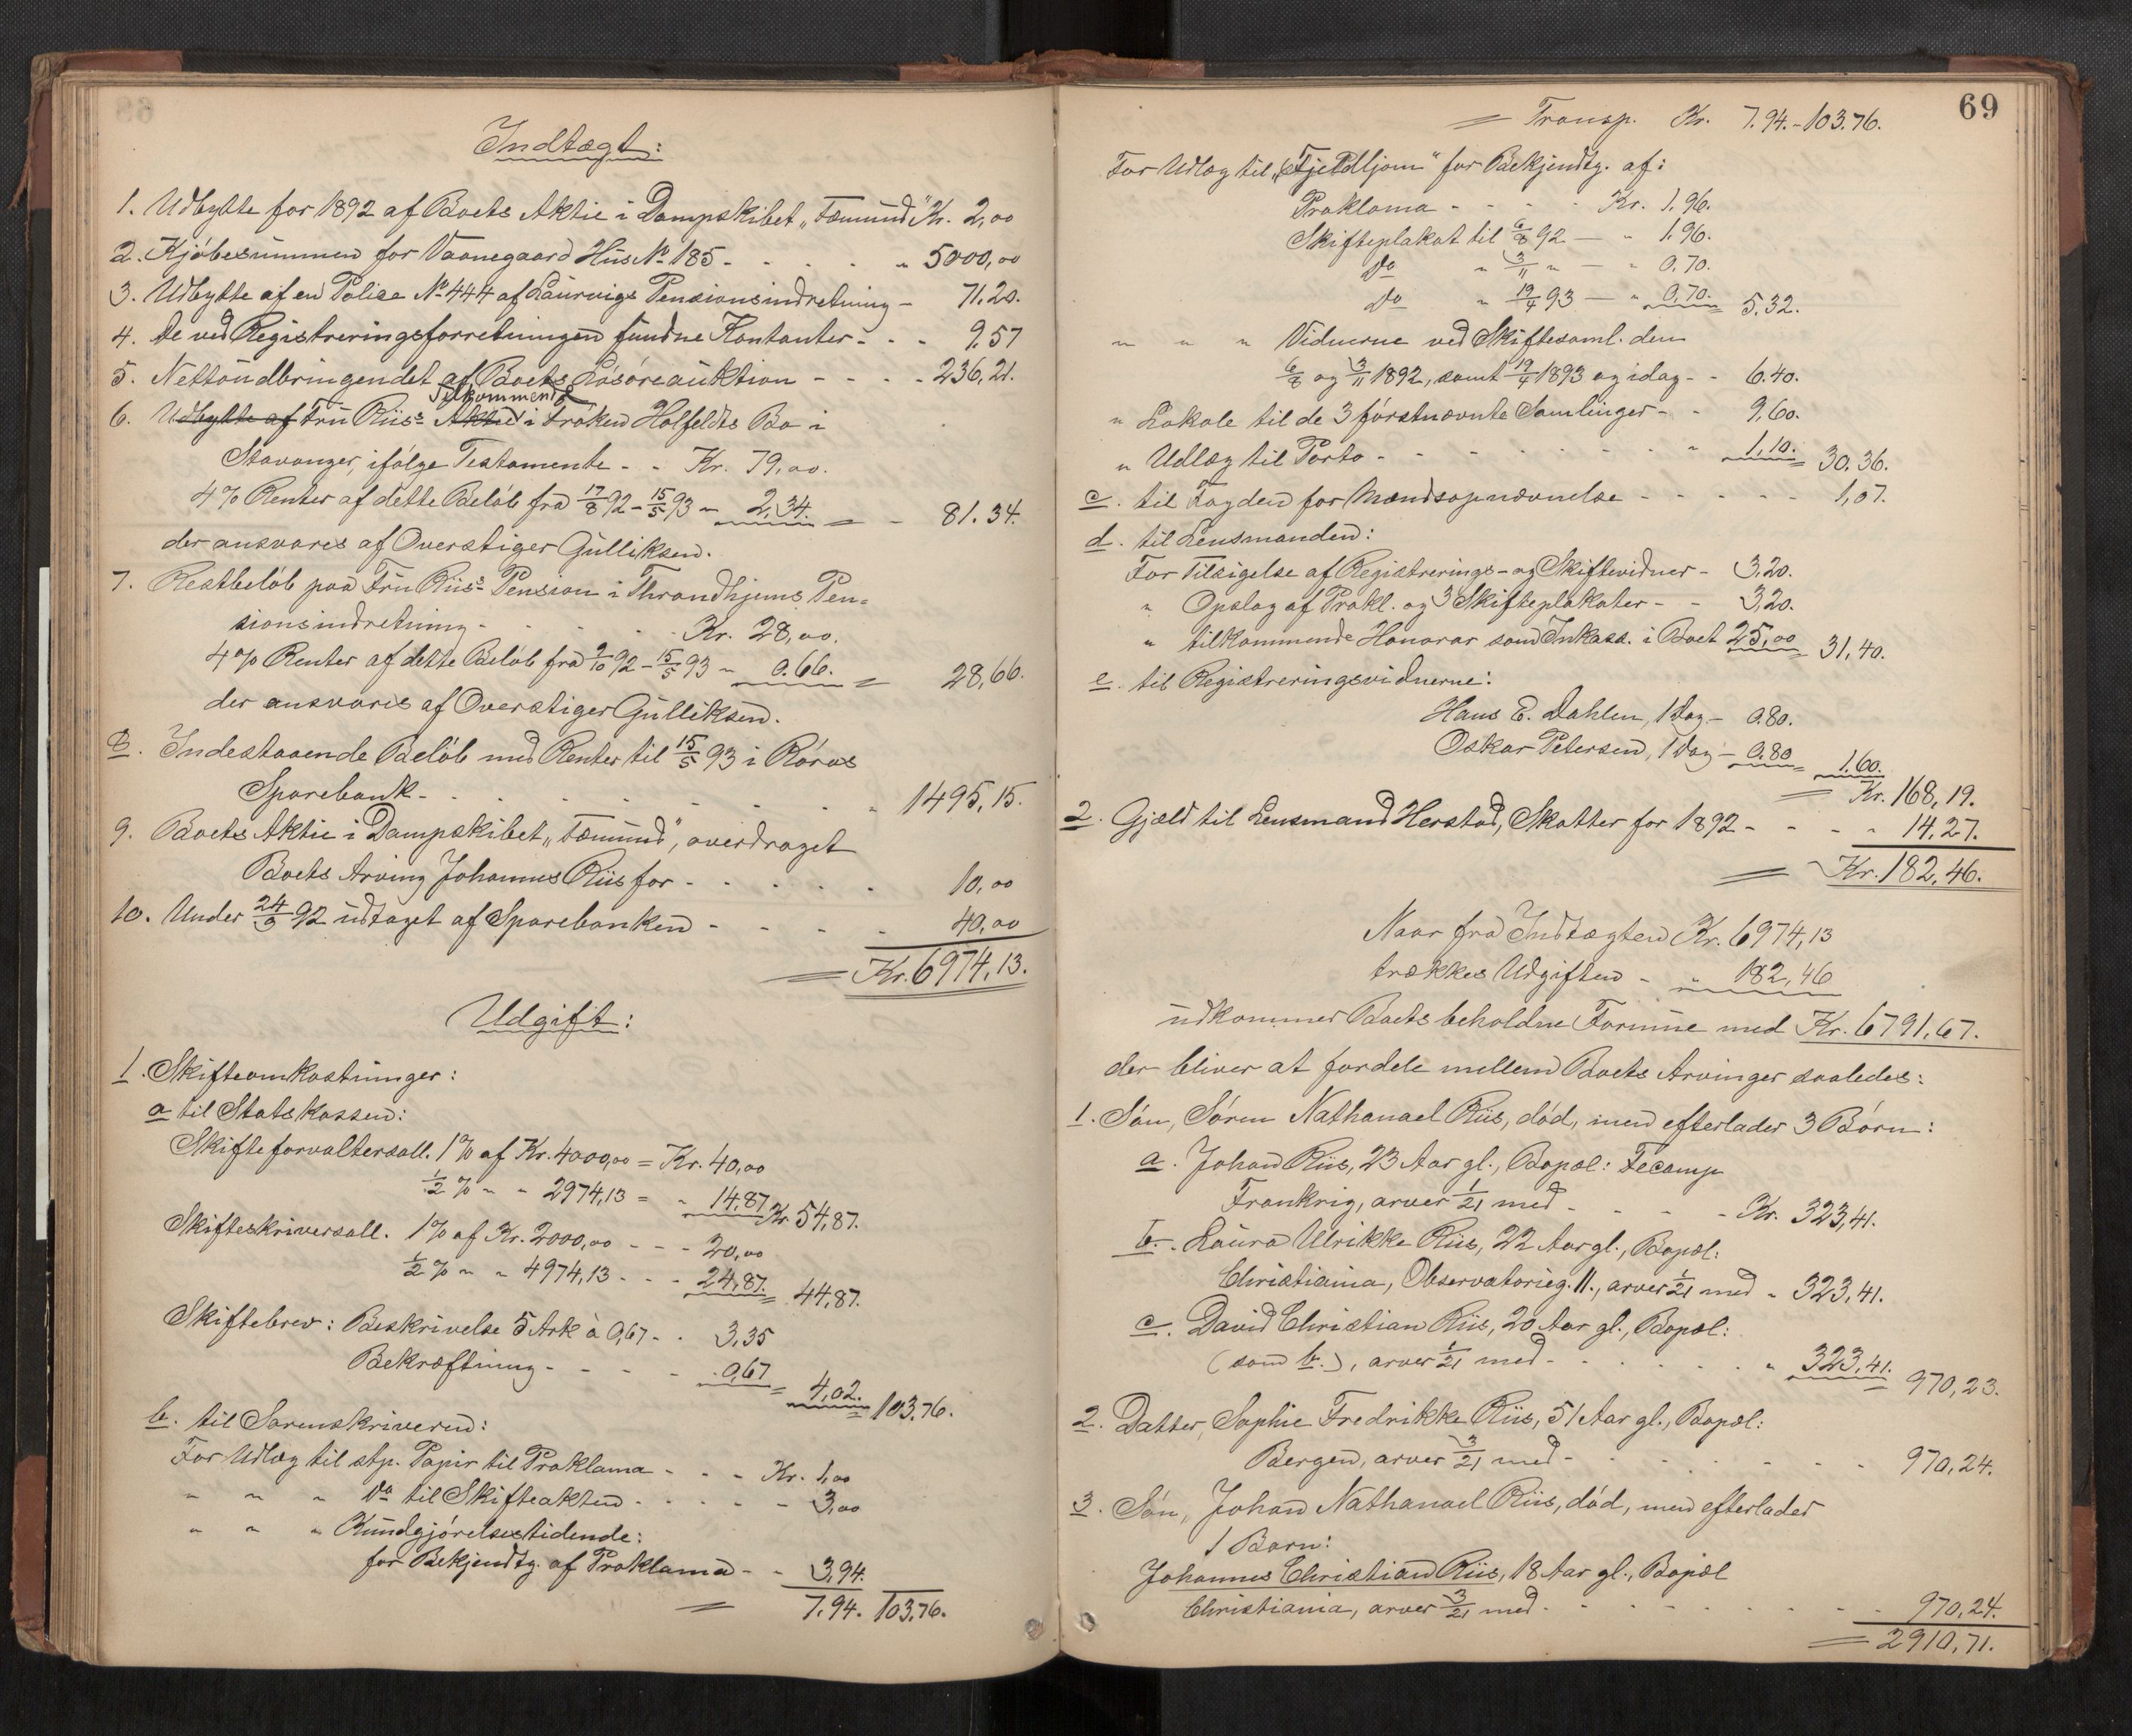 Indtægt:
1. Udbytte for 1892 af Boets Aktie i Dampskibet „Fæmund" Kr. 2,00
2. Kjøbesummen for Vaanegaard Hus No 185 - - - - " 5000,00
3. Udbytte af en Police No 444 af Laurvigs Pensionsindretning - 71.20.
4. De ved Registreringsforretningen fundne Kontanter - - - 9,57
5. Nettoudbringendet af Boets Løsøreauktion - - - - 236,21.
Tilkommende
6. Udbytte af Fru Riis's Aktie i Frøken Holfeldts Bo i
Stavanger, ifølge Testamente - - Kr. 79,00.
4% Renter af dette Beløb fra 17/8 92 - 15/5 93 - 2,34. = - 81.34.
der ansvares af Overstiger Gulliksen.
7. Restbeløb paa Fru Riis's Pension i Throndhjems Pen=
sionsindretning - - - - - Kr. 28,00.
4% Renter af dette Beløb fra 2/10 92 - 15/5 93 " 0.66. = 28,66.
der ansvares af Overstiger Gulliksen.
8. Indestaaende Beløb med Renter til 15/5 93 i Røros
Sparebank - - - - - - - " 1495,15.
9. Boets Aktie i Dampskibet „Fæmund", overdraget
Boets Arving Johannes Riis for - - - - - 10,00
10. Under 24/9 92 udtaget af Sparebanken - - - - 40,00
= Kr. 6974,13.
Udgift:
1. Skifteomkostninger:
a til Statskassen:
Skifteforvaltersall. 1% af Kr. 4000,00 = Kr. 40,00
1/2 % " " 2974,13 = " 14,87 Kr 54,87.
Skifteskriversall. 1% af Kr. 2000,00 - - - 20,00
1/2 % " " 4974,13 - - - 24,87. = 44,87.
Skiftebrev: Beskrivelse 5 Ark à 0,67 - - 3,35
Bekræftning - - - - 0,67 = 4,02. = 103,76.
b. til Sorenskriveren:
For Udlæg til stp. Papir til Proklama - - - Kr. 1,00
" " " Do til Skifteakten - - - - - 3,00
" " " Kundgjørelsestidende:
for Bekjendtg. af Proklama - - 3,94.
= 7.94. 103,76.
69
= Transp. Kr. 7.94. - 103.76.
For Udlæg til „Fjeldljom" for Bekjendtg. af:
Proklama - - - - Kr. 1.96.
Skifteplakat til 6/8 92 — " 1.96.
Do " 3/11 " — " 0.70.
Do " 19/4 93 — " 0.70. = 5,32.
" " " Vidnerne ved Skiftesaml. den
6/8 og 3/11 1892, samt 19/4 1893 og idag - - 6.40.
" Lokale til de 3 førstnævnte Samlinger - - 9,60.
" Udlæg til Porto - - - - - - - " 1,10. = 30.36.
c. til Fogden for Mændsopnævnelse - - - - - 1,07.
d. til Lensmanden:
For Tilsigelse af Registrerings- og Skiftevidner - 3,20.
" Opslag af Prokl. og 3 Skifteplakater - - 3,20.
" tilkommende Honorar som Inkass. i Boet 25,00 = 31,40.
e. til Registreringsvidnerne:
Hans E. Dahlen, 1 Dag - 0.80.
Oskar Petersen, 1 Dag - 0.80 = 1.60.
= Kr. 168,19.
2. Gjæld til Lensmand Herstad, Skatter for 1892 - - - - 14,27.
= Kr. 182,46.
Naar fra Indtægten Kr. 6974,13
trækkes Udgiften - " 182,46
udkommer Boets beholdne Formue med Kr. 6791,67.
der bliver at fordele mellem Boets Arvinger saaledes:
1. Søn, Søren Nathanael Riis, død, men efterlader 3 Børn:
a. Johan Riis, 23 Aar gl., Bopæl: Fecamp
Frankrig, arver 1/21 med - - - - Kr. 323,41.
b. Laura Ulrikke Riis, 22 Aar gl., Bopæl:
Christiania, Observatorieg. 11., arver 1/21 med " 323,41.
c. David Christian Riis, 20 Aar gl., Bopæl:
(som b.), arver 1/21 med - - - - - - " 323,41. = 970,23.
2. Datter, Sophie Fredrikke Riis, 51 Aar gl., Bopæl:
Bergen, arver 3/21 med - - - - - - - 970,24.
3. Søn, Johan Nathanael Riis, død, men efterlader
1 Barn:
Johannes Christian Riis, 18 Aar gl., Bopæl
Christiania, arver 3/21 med - - - - - - - - 970,24.
= 2910,71.